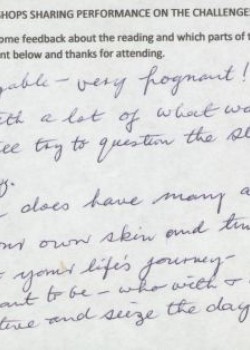 HOPS SHARING PERFORMANCE ON THE CHALLENGE
ome feedback about the reading and which parts of t
nt below and thanks for attending.
yable - very pognant!
ith a lot of what wa
ee try to question the s
y.
does have many a
our own skin and tim
your life's journey -
ant to be - who with &
tive and seize the day